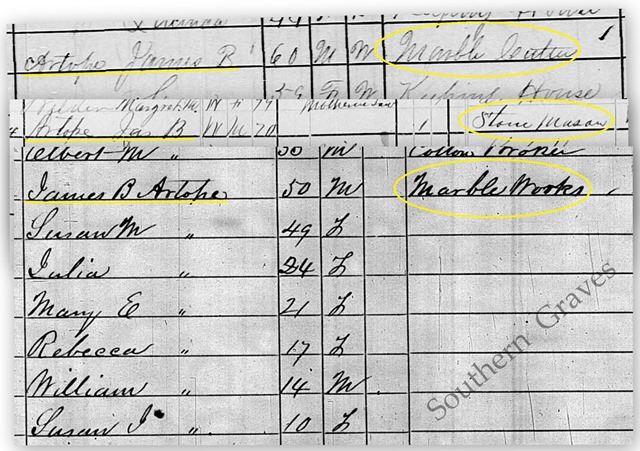 44
Artope James B 60 M W Marble Cutter 1
59 F W Keeping House
Margret M W F 77 Mother in Law
4 Artope Jas B W M 70 1 Stone Mason
Albert M " 30 M Cotton Broker
James B Artope 50 M Marble Works
Susan M " 49 F
Julia " 24 F
Mary E " 21 F
Rebecca " 17 F
William " 14 M
Susan J " 10 F
Southern Graves